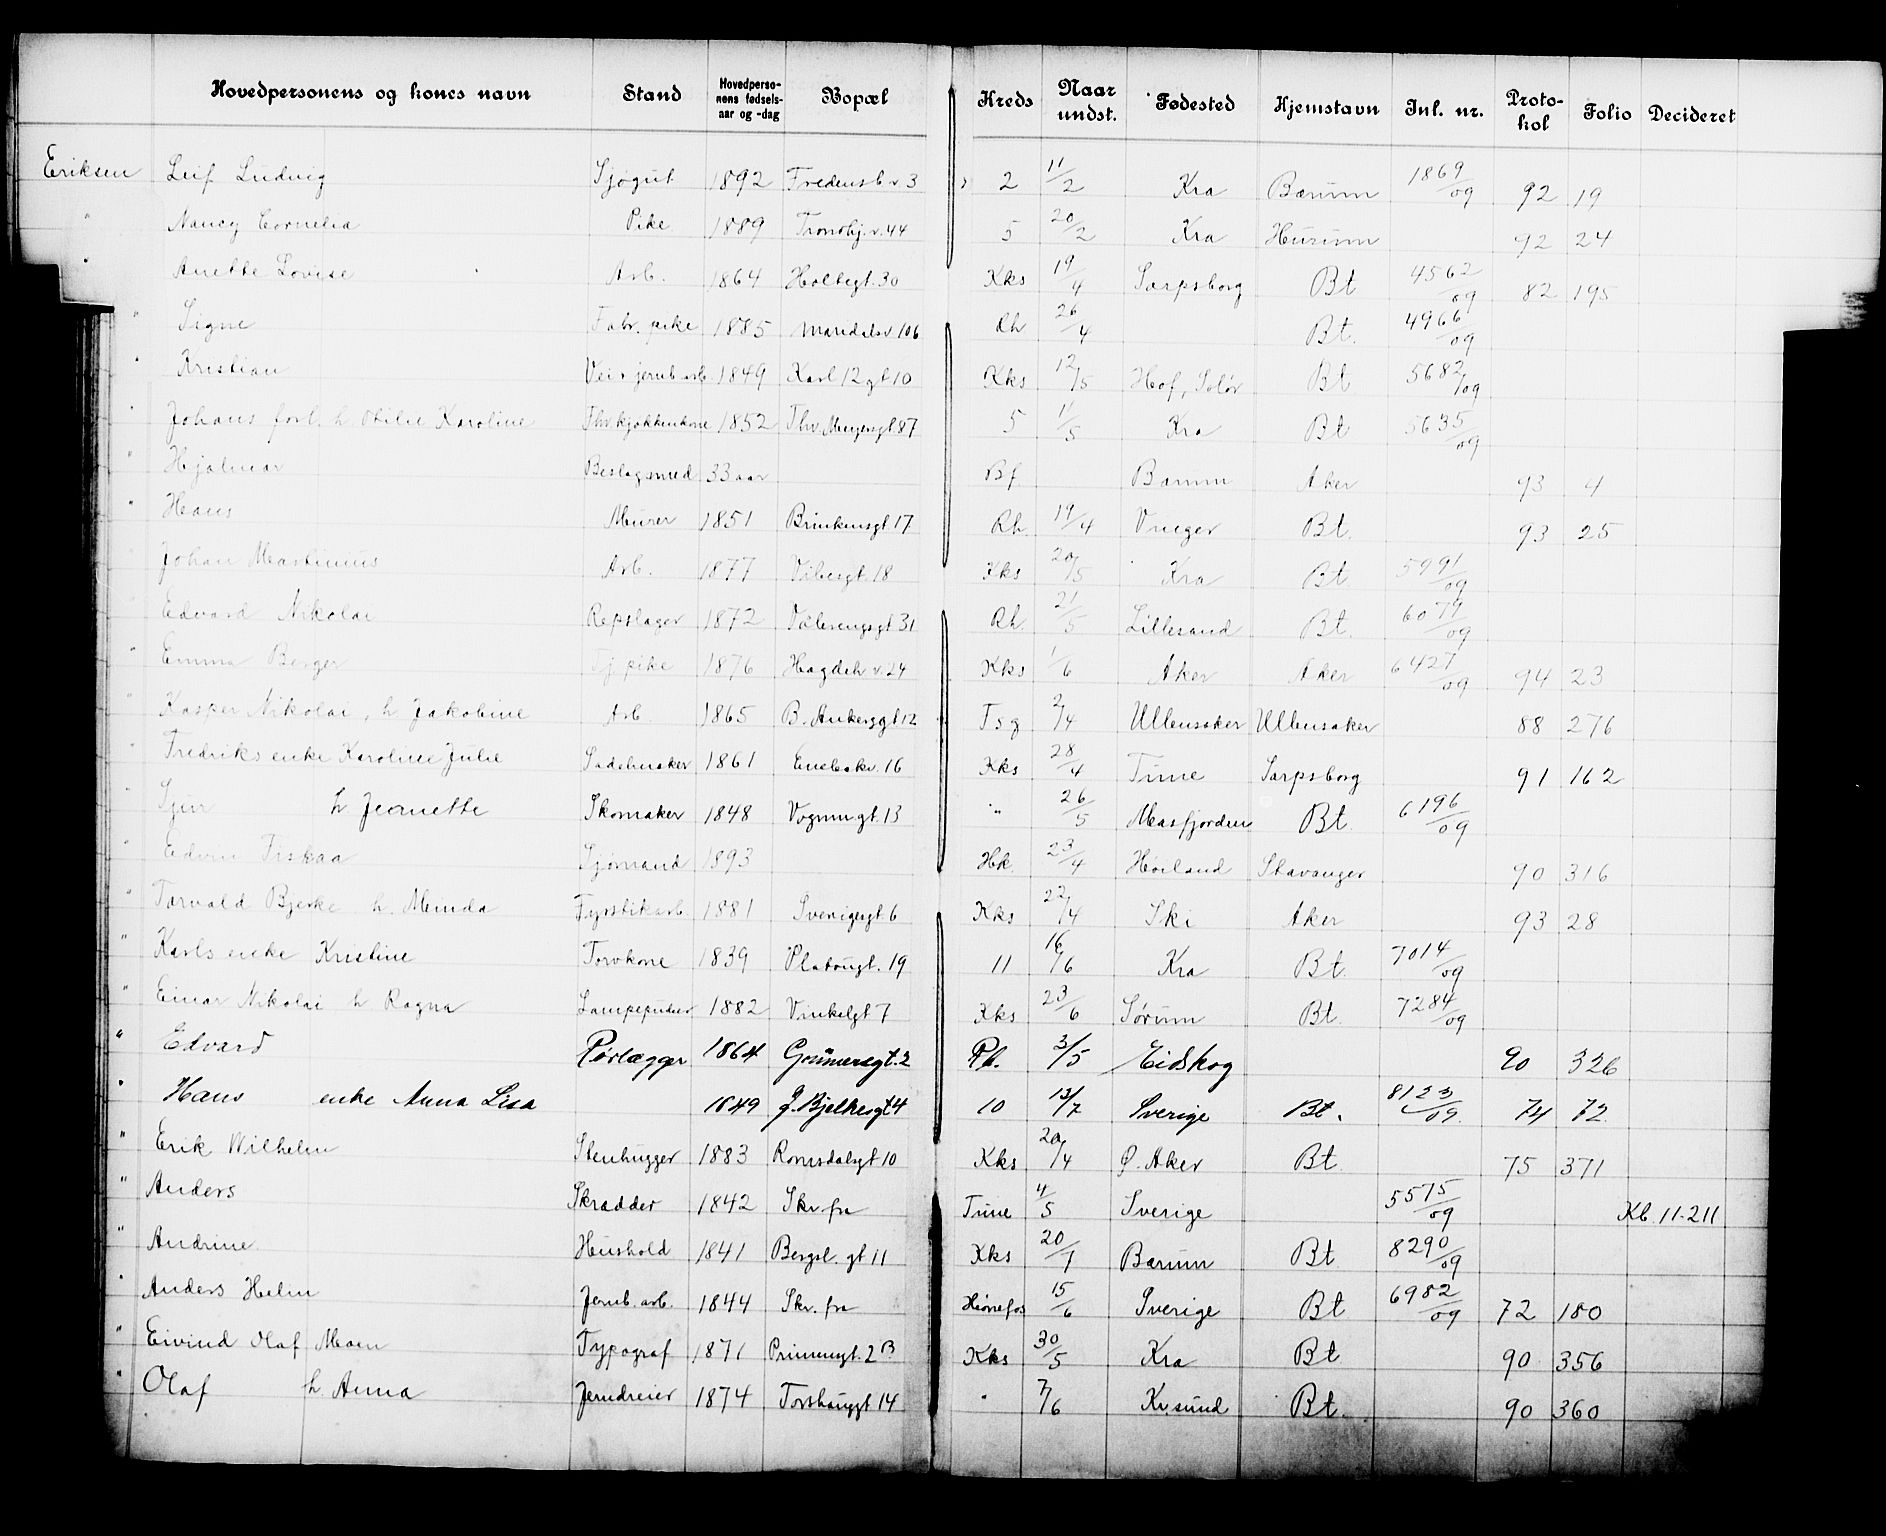 Hovedpersonens og kones navn Stand Hovedpersonens fødselsaar og -dag Bopæl Kreds Naar undst. Fødested Hjemstavn Inl. nr. Protokol Folio Decideret
Eriksen Leif Ludvig Sjøgut 1892 Fredensb v 3 2 11/2 Kra Bærum 1869/09 92 19
" Nancy Cornelia Pike 1889 Trondhj. v. 44 5 20/2 Kra Hurum 92 24
" Anette Lovise Arb. 1864 Holtegt. 30 Kks 19/4 Sarpsborg Bt 4562/09 82 195
" Signe Fabr. pike 1885 Maridalsv 106 Rh 26/4 Bt. 4966/09
" Kristian Vei & jernb arb 1849 Karl 12 gt 10 Kks 12/5 Hof, Solør Bt 5682/09
" Johans forl. h. Otilie Karoline Thv. kjøkkenkone 1852 Thv. Meyersgt 87 5 1/5 Kra Bt 5635/09
" Hjalmar Beslagsmed 33 aar Bf Bærum Aker 93 4
" Hans Murer 1851 Brinkensgt 17 Rh. 19/4 Vinger Bt. 93 25
Johan Martinius Arb. 1877 Vibesgt. 18 Kks 20/5 Kra Bt 5991/09
" Edvard Nikolai Repslager 1872 Vålerengsgt 31 Rh. 21/5 Lillesand Bt. 6079/09
" Emma Berger Tj. pike 1876 Hagdeh v. 24 Kks 1/6 Aker Aker 6427/09 94 23
" Kasper Nikolai, h Jakobine Arb. 1865 B. Ankersgt 12 Tsg 2/4 Ullensaker Ullensaker 88 276
" Fredriks enke Karoline Julie Sadelmaker 1861 Enebakv. 16 Kks 28/4 Time Sarpsborg 91 162
" Sjur h Jeanette Skomaker 1848 Vognmgt. 13 " 26/5 Masfjorden Bt 6196/09
" Edvin Fiskaa Sjømand 1893 Hk. 23/4 Høiland Stavanger 90 316
" Torvald Bjerke h. Minda Fyrstikarb. 1881 Sverigesgt 6 Kks 22/4 Ski Aker 93 28
" Karls enke Kristine Torvkone 1839 Platougt. 19 11 16/6 Kra Bt. 7014/09
" Einar Nikolai h Ragna Lampepudser 1882 Vinkelgt 7 Kks 23/6 Sørum Bt. 7284/09
" Edvard Rørlægger 1864 Grünersgt. 2 Rh. 3/5 Eidskog 90 326
" Hans enke Anna Lisa 1849 J. Bjelkesgt 4 10 13/7 Sverige Bt. 8123/09. 74 72
" Erik Wilhelm Stenhugger 1883 Romsdalsgt 10 Kks 20/4 Ø. Aker Bt. 75 371
" Anders Skrædder 1842 Skr. fra Tune 4/5 Sverige 5575/09 Kb. 11-211
" Andrine Hushold 1841 Bergsl. gt 11 Kks 20/1 Bærum Bt 8290/09
" Anders Helin Jernb. arb. 1844 Skr. fra Hønefos 15/6 Sverige Bt 6982/09 72 180
" Eivind Olaf Moen Typograf 1871 Primusgt. 2 B Kks 30/5 Kra Bt 90 356
" Olaf h. Anna Jerndreier 1874 Torshauggt 14 " 7/6 Kr.sund Bt. 90 360